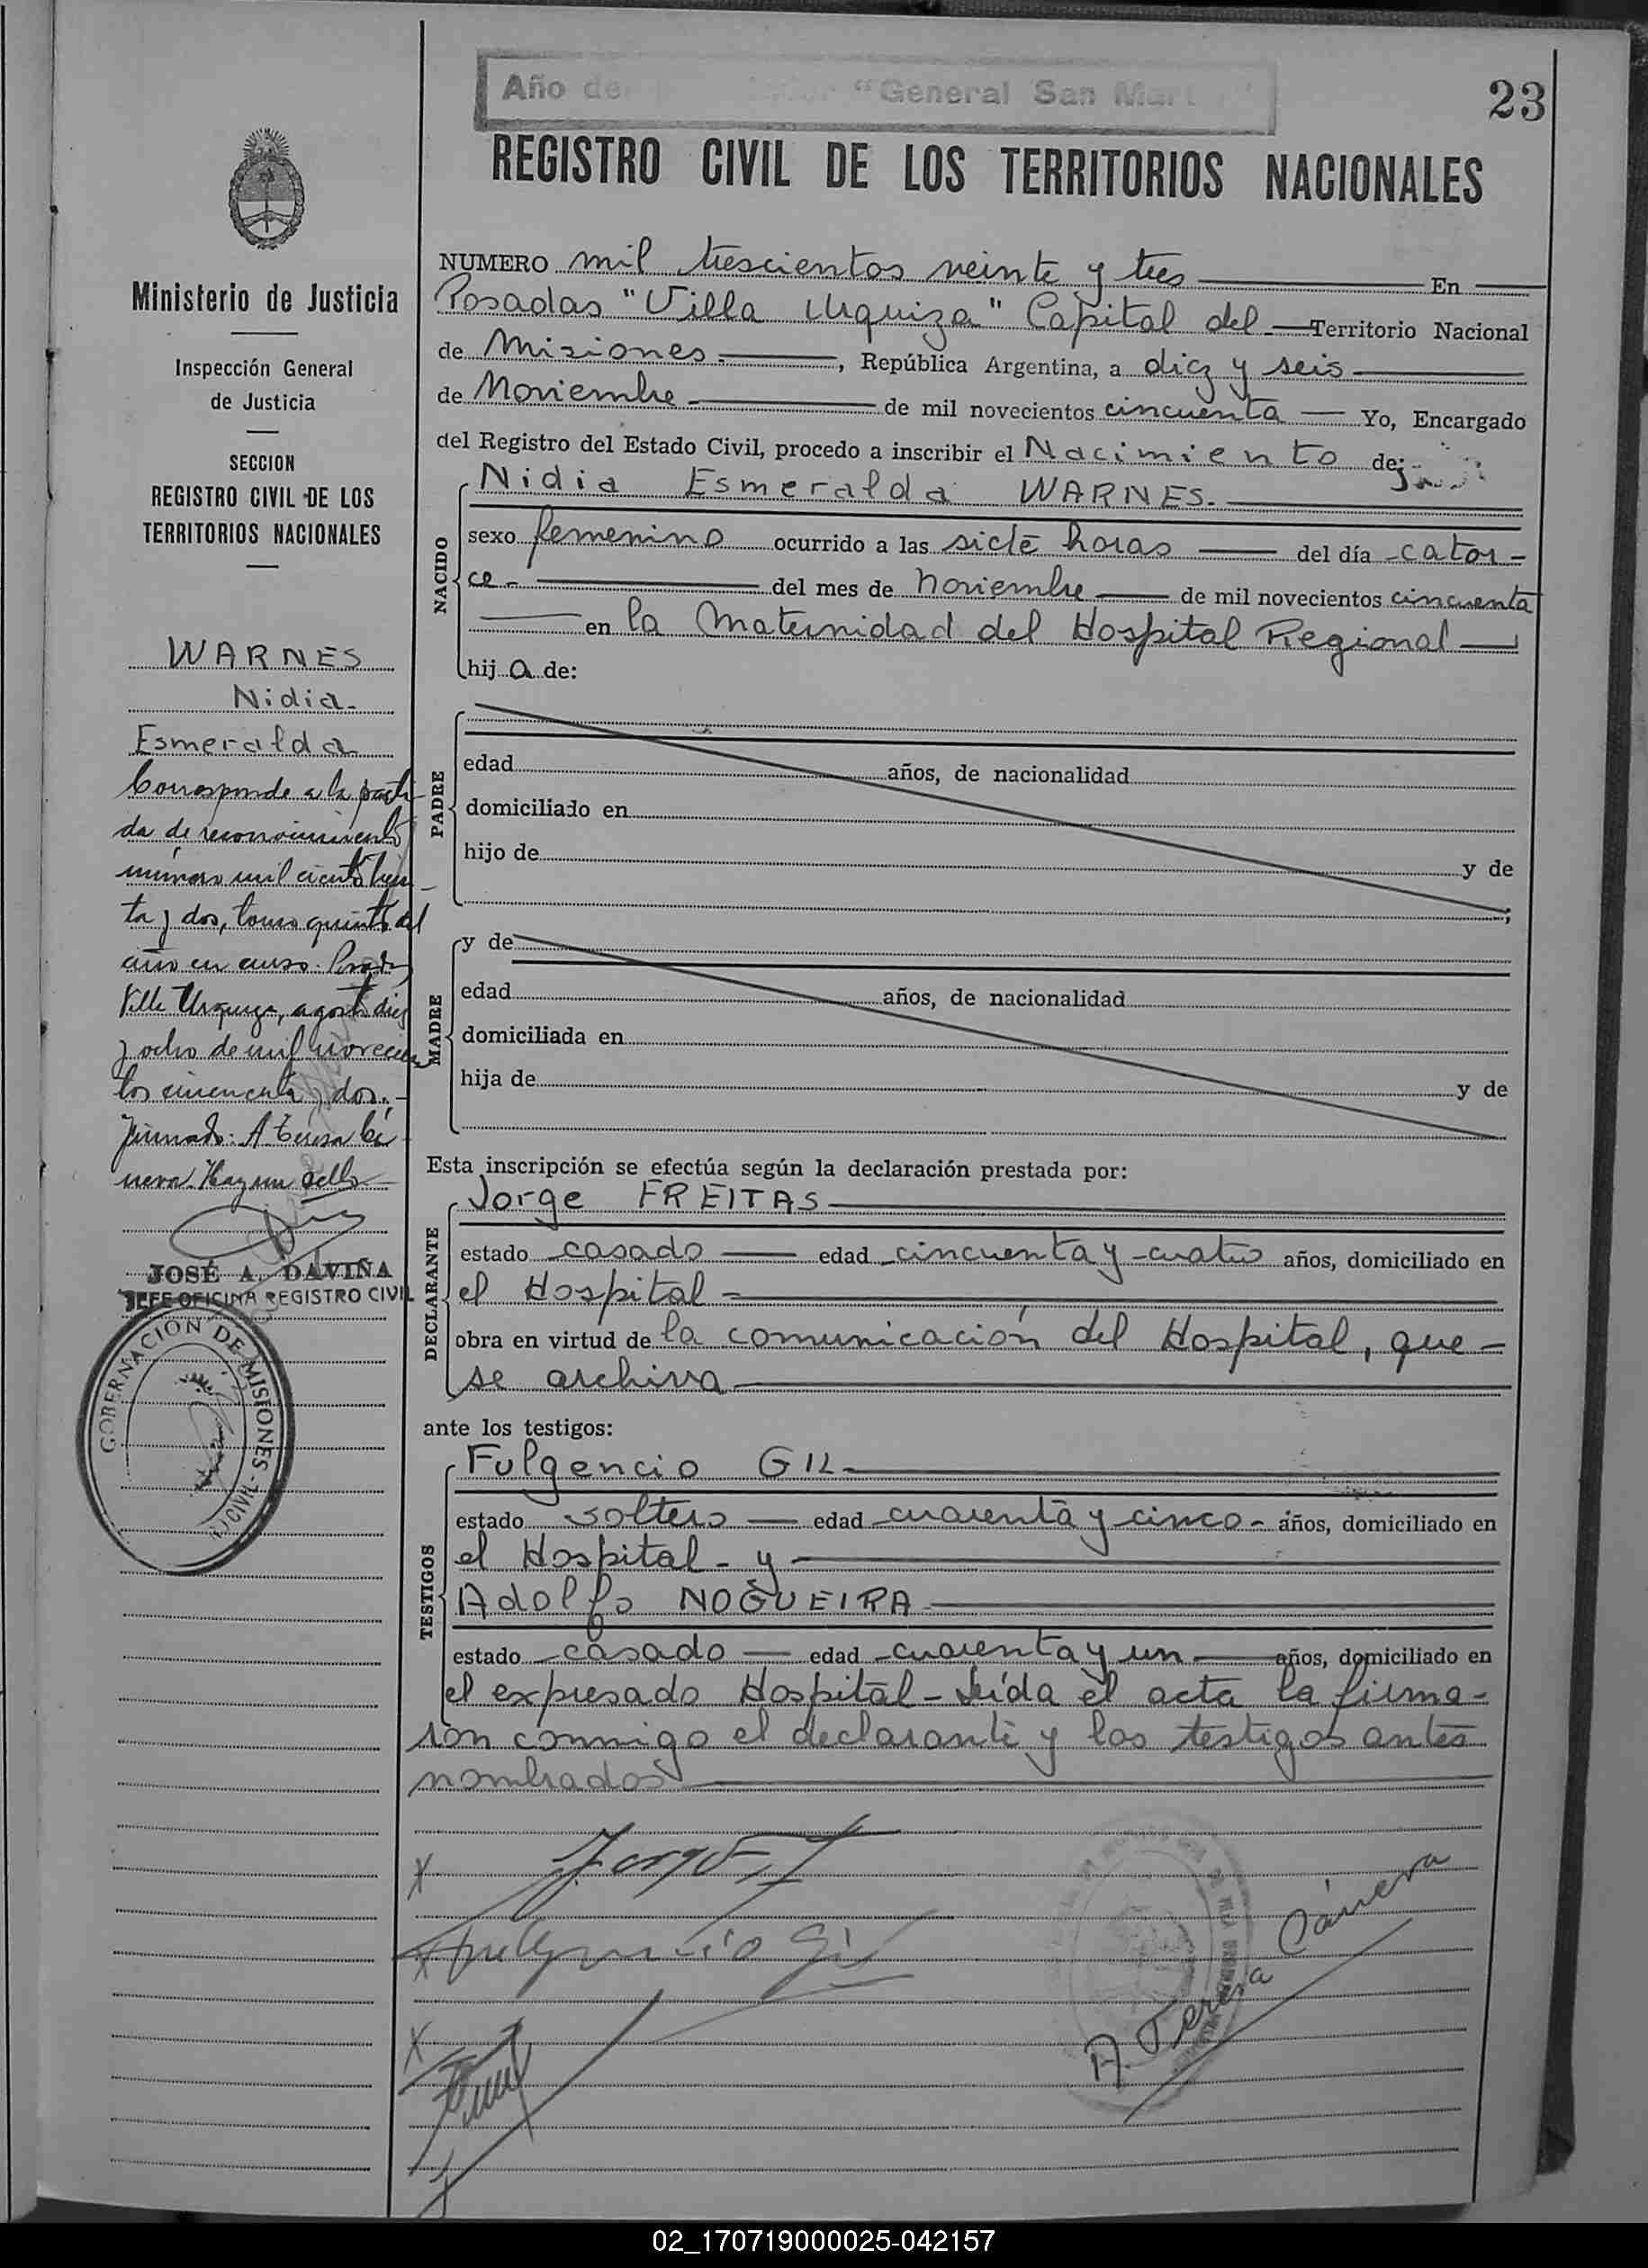 Año de "General San Mart
23
REGISTRO CIVIL DE LOS TERRITORIOS NACIONALES
Ministerio de Justicia
Inspección General
de Justicia
SECCION
REGISTRO CIVIL DE LOS
TERRITORIOS NACIONALES
WARNES
Nidia
Esmeralda
Corresponde a la parti
da de reconocimiento
número mil ciento trein
ta y dos, tomo quinto del
año en curso. Posadas
Villa Urquiza, agosto diez
y ocho de mil novecien
tos cincuenta y dos.-
Firmado: A. Teresa Cá
nera. Hay un sello
JOSÉ A. DAVIÑA
JEFE OFICINA REGISTRO CIVIL
GOBERNACION DE MISIONES - CIVIL
NUMERO mil trescientos veinte y tres En
Posadas "Villa Urquiza" Capital del Territorio Nacional
de Misiones, República Argentina, a diez y seis
de Noviembre de mil novecientos cincuenta Yo, Encargado
del Registro del Estado Civil, procedo a inscribir el Nacimiento de:
NACIDO
Nidia Esmeralda WARNES.
sexo femenino ocurrido a las siete horas del día cator-
ce- del mes de noviembre de mil novecientos cincuenta
en la Maternidad del Hospital Regional
hij a de:
PADRE
edad años, de nacionalidad
domiciliado en
hijo de y de
;
MADRE
y de
edad años, de nacionalidad
domiciliada en
hija de y de
Esta inscripción se efectúa según la declaración prestada por:
DECLARANTE
Jorge FREITAS
estado casado edad cincuenta y cuatro años, domiciliado en
el Hospital -
obra en virtud de la comunicación del Hospital, que-
se archiva
ante los testigos:
TESTIGOS
Fulgencio GIL
estado soltero edad cuarenta y cinco - años, domiciliado en
el Hospital - y
Adolfo NOGUEIRA
estado casado edad cuarenta y un años, domiciliado en
el expresado Hospital - Leída el acta la firma-
ron conmigo el declarante y los testigos antes
nombrados
Fulgencio Gil
A. Teresa Cánera
02_170719000025-042157